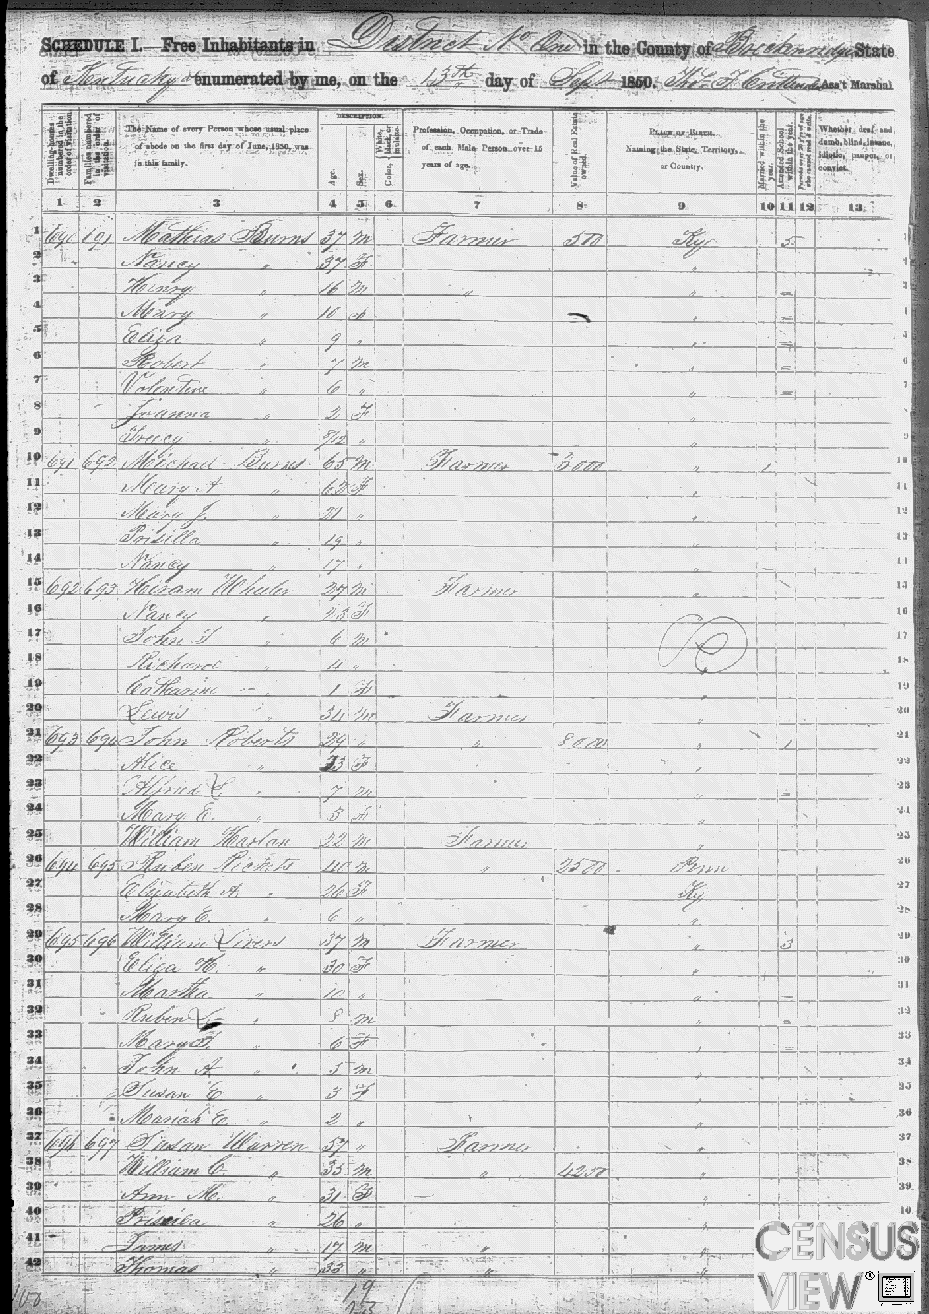 SCHEDULE I.—Free Inhabitants in District No One in the County of Breckenridge State
of Kentucky enumerated by me, on the 13th day of Sept 1850. Ass't Marshal
Dwelling-houses numbered in the order of visitation.
Families numbered in the order of visitation.
The Name of every Person whose usual place of abode on the first day of June, 1850, was in this family.
DESCRIPTION.
Age.
Sex.
Color, White, black, or mulatto.
Profession, Occupation, or Trade of each Male Person over 15 years of age.
Value of Real Estate owned.
PLACE OF BIRTH. Naming the State, Territory, or Country.
Married within the year.
Attended School within the year.
Persons over 20 y'rs of age who cannot read & write.
Whether deaf and dumb, blind, insane, idiotic, pauper, or convict.
1 2 3 4 5 6 7 8 9 10 11 12 13
1 690 691 Mathias Burns 37 m Farmer 500 Ky 5 1
2 Nancy " 37 F " 2
3 Henry " 16 m " " 3
4 Mary " 10 " 4
5 Eliza " 9 " " 5
6 Robert " 7 m " 6
7 Valentine " 6 " " 7
8 Joanna " 2 F " 8
9 " " " 9
10 691 692 Michael Burns 65 m Farmer 3000 " 1 10
11 Mary A " 62 F " 11
12 Mary J. " 21 " " 12
13 Prisilla " 19 " " 13
14 Nancy " 17 " " 14
15 692 693 Hiram Wheeler 27 m Farmer " 15
16 Nancy " 23 F " 16
17 John T " 6 m 17
18 Richard " 4 " " 18
19 Catharine " 1 F " 19
20 Lewis " 34 m Farmer " 20
21 693 694 John Roberts 29 " " 8000 " 1 21
22 Alice " 23 F " 22
23 Alfred L " 7 m " 23
24 Mary E. " 3 F " 24
25 William Harlan 22 m Farmer " 25
26 694 695 Ruben Rickets 40 m " 2500 Penn 26
27 Elizabeth A. " 26 F Ky 27
28 Mary E. " 6 " " 28
29 695 696 William Livers 37 m Farmer " 3 29
30 Eliza H. " 30 F " 30
31 Martha " 10 " " 31
32 Ruben L " 8 m " 32
33 Mary F. " 6 F " 33
34 John A " 5 m " 34
35 Susan E " 3 F " 35
36 Mariah E. " 2 " " 36
37 696 697 Susan Warren 57 " Farmer " 37
38 William C. " 35 m " 4250 " 38
39 Ann M. " 31 F " 39
40 Prisilla " 26 " " 40
41 James " 17 m " "
42 Thomas " 33 " "
19
23
CENSUS
VIEW®